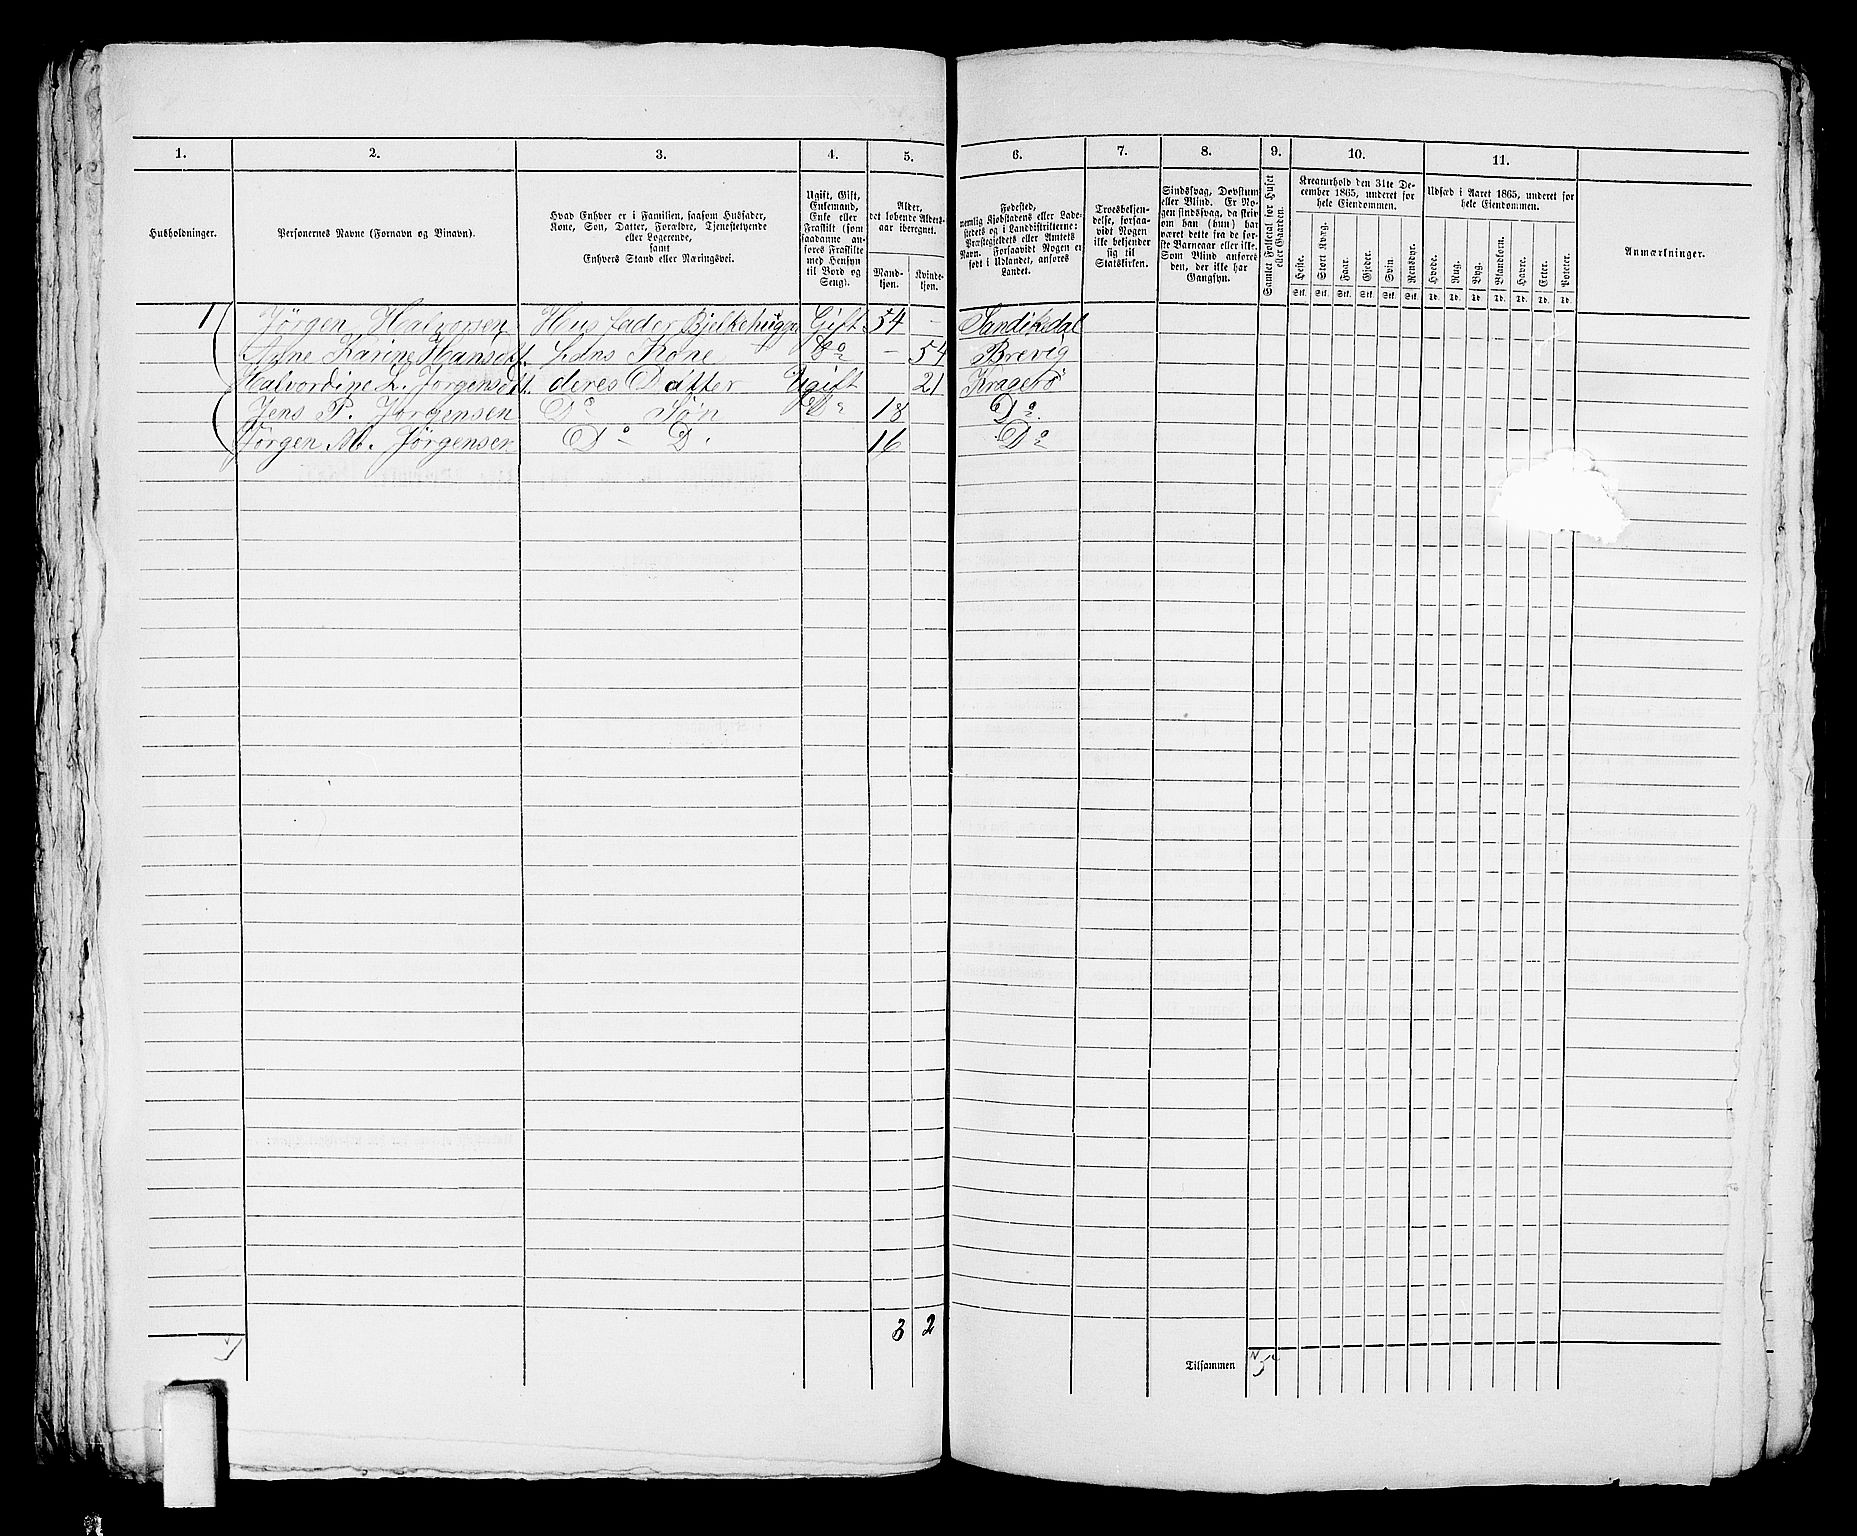 1. 2. 3. 4. 5. 6. 7. 8. 9. 10. 11.
Husholdninger.
Personernes Navne (Fornavn og Binavn).
Hvad Enhver er i Familien, saasom Husfader,
Kone, Søn, Datter, Forældre, Tjenestetyende
eller Logerende,
samt
Enhvers Stand eller Næringsvei.
Ugift, Gift,
Enkemand,
Enke eller
Fraskilt (som
saadanne an-
føres Fraskilte
med Hensyn
til Bord og
Seng).
Alder,
det løbende Alders-
aar iberegnet.
Mand-
kjøn.
Kvinde-
kjøn.
Fødested,
nemlig Kjøbstadens eller Lade-
stedets og i Landdistrikterne:
Præstegjeldets eller Amtets
Navn. Forsaavidt Nogen er
født i Udlandet, anføres
Landet.
Troesbekjen-
delse, forsaa-
vidt Nogen
ikke bekjender
sig til
Statskirken.
Sindssvag, Døvstum
eller Blind. Er No-
gen sindssvag, da skriv
om han (hun) har
været dette fra de før-
ste Barneaar eller ikke.
Som Blind anføres
den, der ikke har
Gangsyn.
Samlet Folketal for Huset
eller Gaarden.
Kreaturhold den 31te De-
cember 1865, underet for
hele Eiendommen.
Heste. Stort Kvæg. Faar. Gjeder. Svin. Rensdyr.
Stk. Stk. Stk. Stk. Stk. Stk.
Udsæd i Aaret 1865, underet for
hele Eiendommen.
Hvede. Rug. Byg. Blandkorn. Havre. Erter. Poteter.
Td. Td. Td. Td. Td. Td. Td.
Anmærkninger.
1 Jörgen Halvorsen Husfader Bjelkehugger Gift 54 - Sandikedal
Karine Hansdt. Hans Kone Do - 54 Brevig
Halvordine L. Jörgensdt. deres Datter Ugift 21 Kragerö
Jens P. Jörgensen Do Søn Do 18 Do
Jörgen M. Jörgensen Do D. 16 Do
3 2
Tilsammen 5